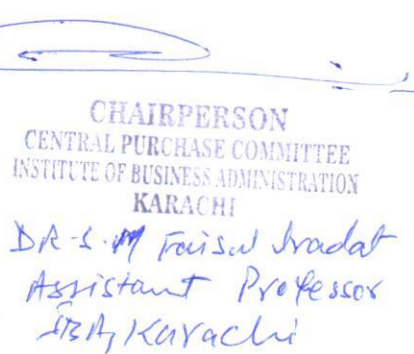 CHAIRPERSON
CENTRAL PURCHASE COMMITTEE
INSTITUTE OF BUSINESS ADMINISTRATION
KARACHI
DR-S. M Faisal Iradat
Assistant Professor
IBA, Karachi